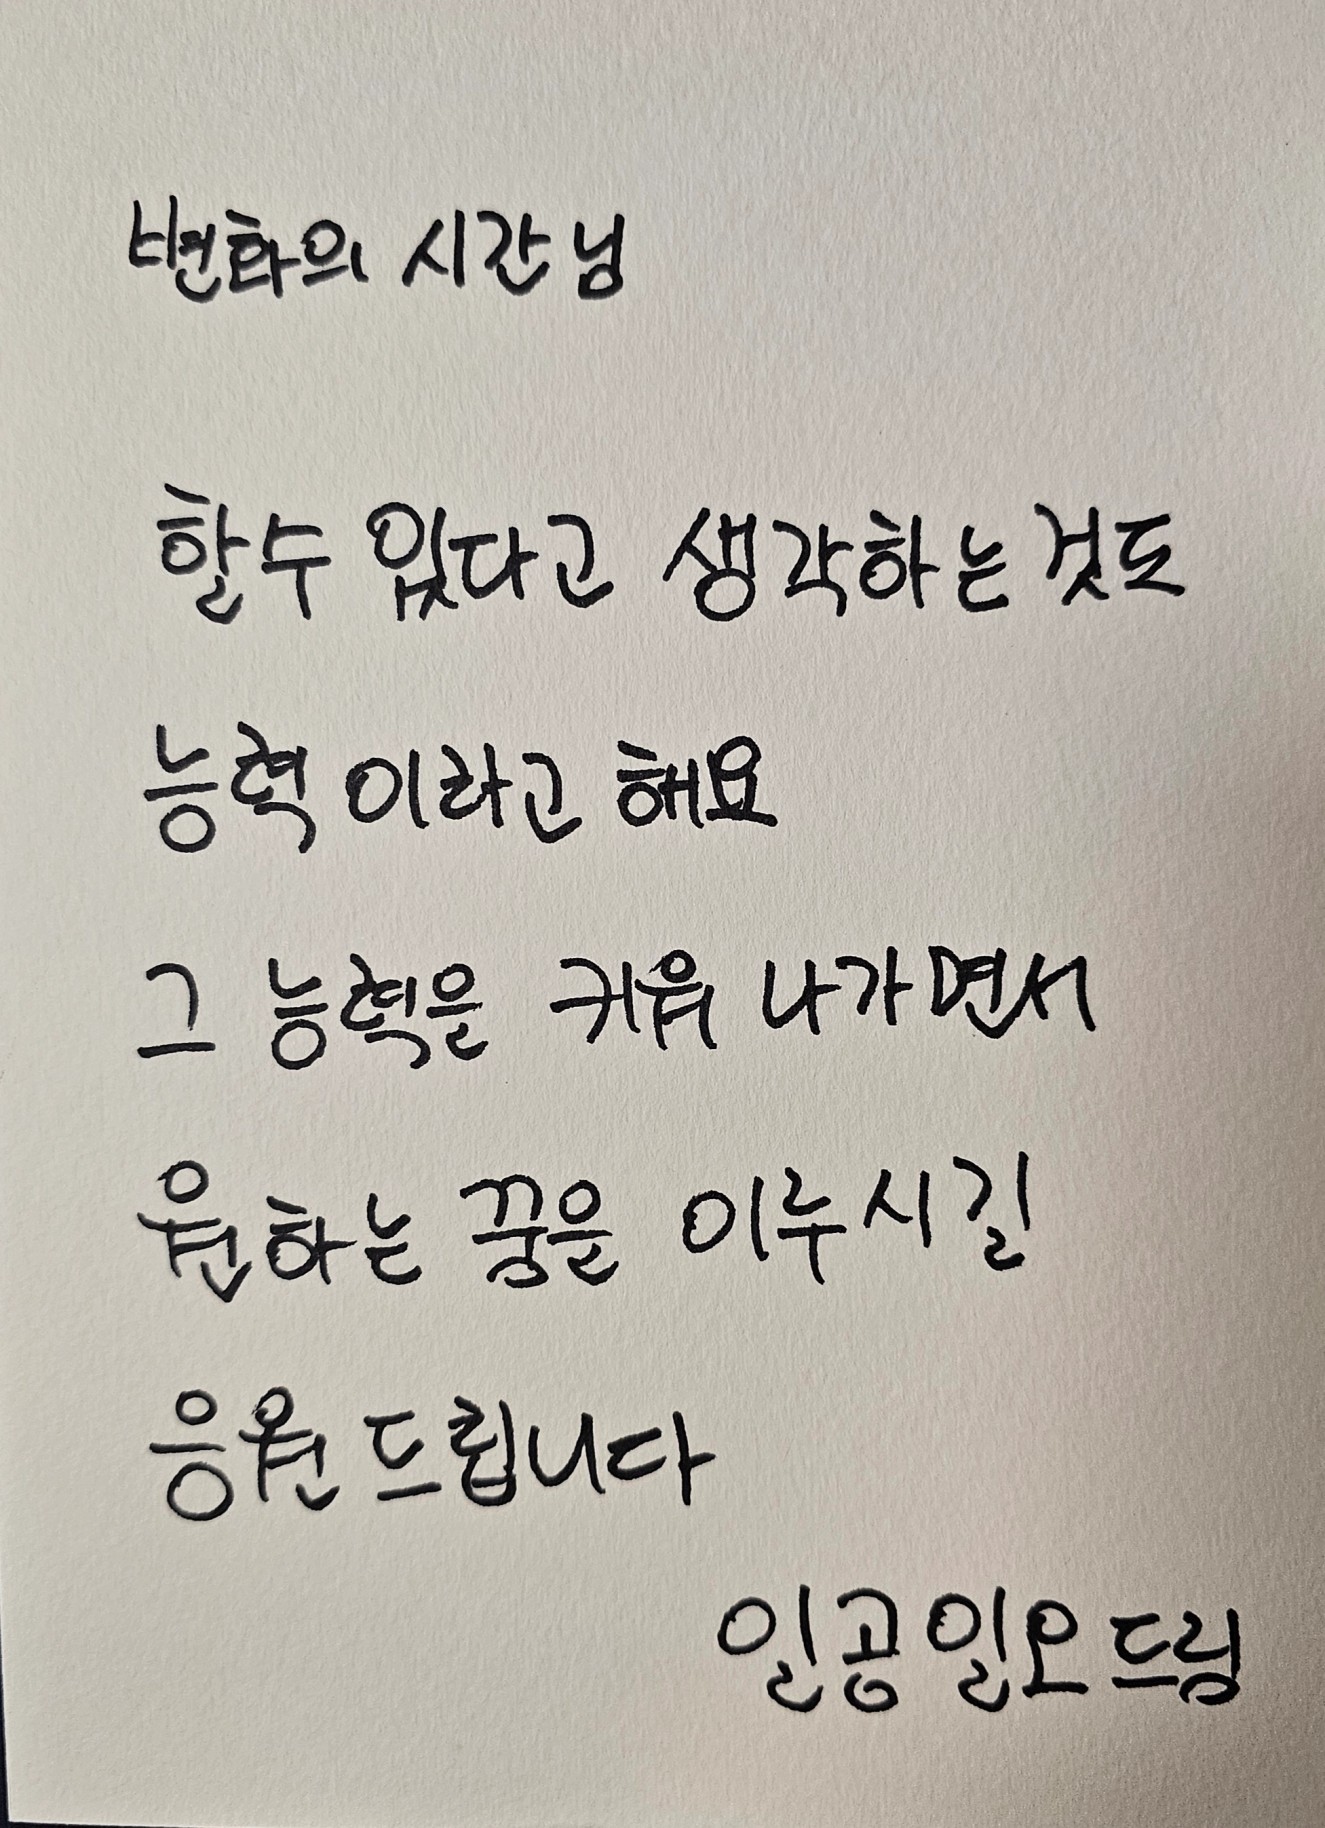 변화의 시간님
할수 있다고 생각하는것도
능력이라고 해요
그 능력을 키워 나가면서
원하는 꿈을 이루시길
응원드립니다
인공인오드림